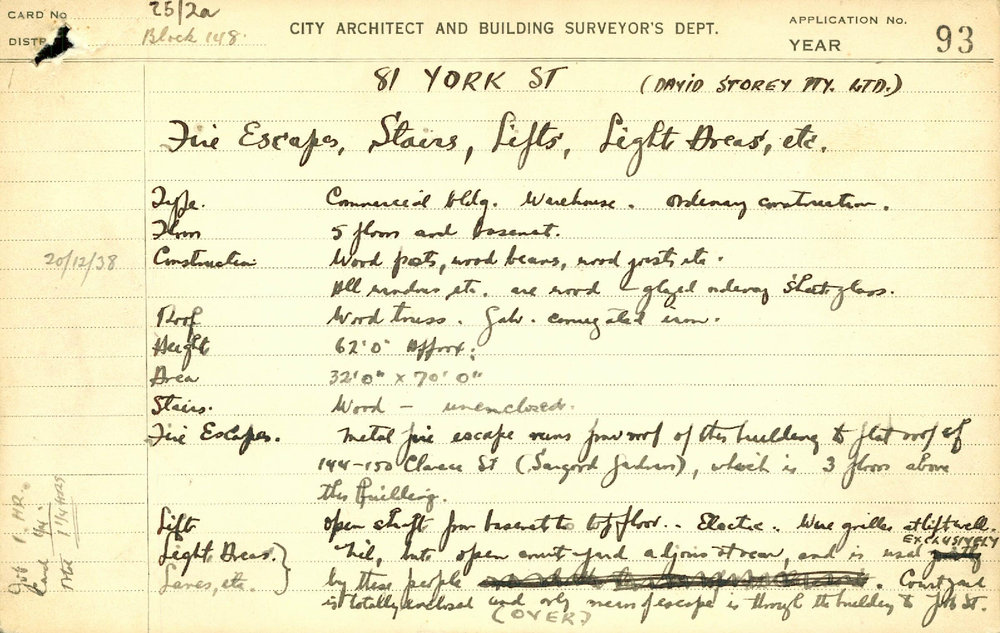 CARD No 25/2a CITY ARCHITECT AND BUILDING SURVEYOR'S DEPT. APPLICATION No.
DISTR Block 148 YEAR 93
81 YORK ST (DAVID STOREY PTY. LTD.)
Fire Escapes, Stairs, Lifts, Light Areas, etc.
Type. Commercial bldg. Warehouse. Ordinary construction.
Floors 5 floors and basement.
20/12/38 Construction Wood posts, wood beams, wood joists etc.
All windows, etc. are wood - glazed ordinary sheet glass.
Roof Wood truss. Galv. corrugated iron.
Height 62'0" Approx.
Area 32'0" x 70'0"
Stairs. Wood - unenclosed.
Fire Escapes. Metal fire escape runs from roof of this building to flat roof of
144-150 Clarence St (Sargood Gardiners), which is 3 floors above
this building.
Lifts Open shaft from basement to top floor. - Electric. Wire grilles at liftwell.
Light Areas. Nil, but open court yard adjoins at rear, and is used EXCLUSIVELY
Lanes, etc. by these people. Court yard
is totally enclosed and only means of escape is through the building to York St.
(OVER)
Job 1 HR.
Card 1/4 "
Total 1 1/4 HRS